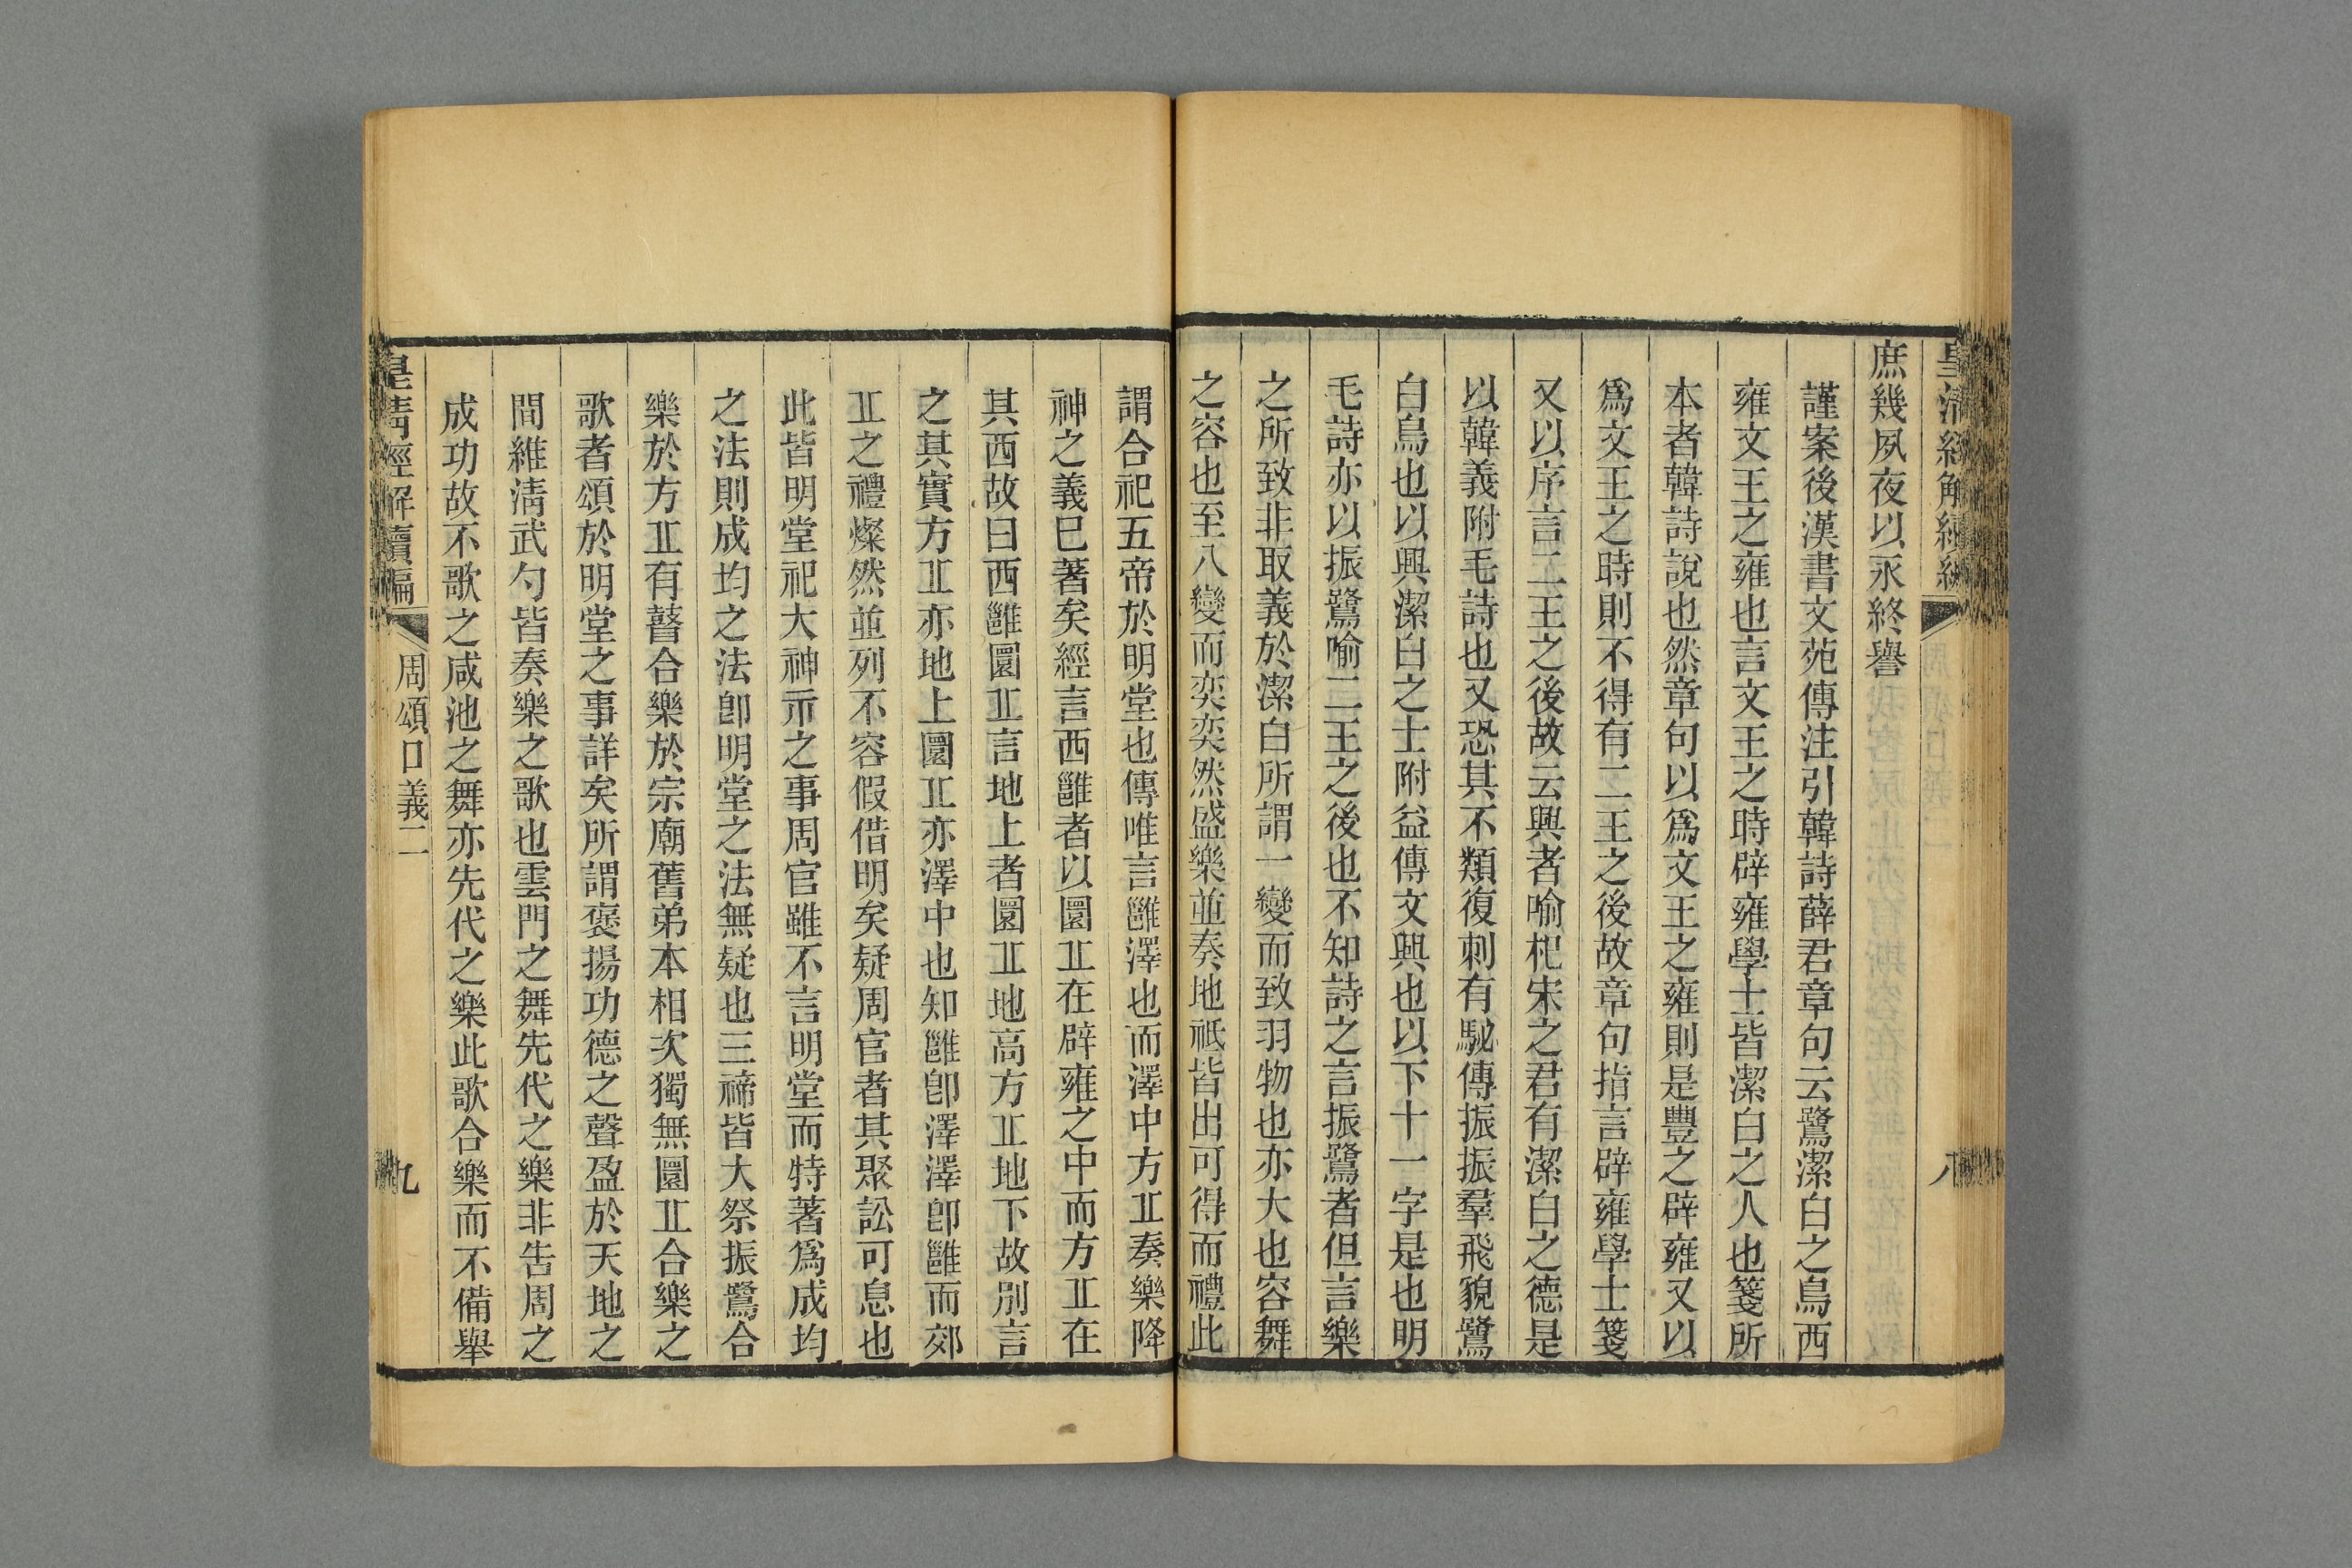 庶幾夙夜以永終譽
謹案後漢書文苑傳注引韓詩薛君章句云鷺潔白之鳥西
雍文王之雍也言文王之時辟雍學士皆潔白之人也箋所
本者韓詩說也然章句以爲文王之雍則是豐之辟雍又以
爲文王之時則不得有二王之後故章句指言辟雍學士箋
又以序言二王之後故云興者喻杞宋之君有潔白之德是
以韓義附毛詩也又恐其不類復刺有駜傳振振羣飛貌鷺
白鳥也以興潔白之士附益傳文興也以下十一字是也明
毛詩亦以振鷺喻二王之後也不知詩之言振鷺者但言樂
之所致非取義於潔白所謂一變而致羽物也亦大也容舞
之容也至八變而奕奕然盛樂並奏地祇皆出可得而禮此
謂合祀五帝於明堂也傳唯言雝澤也而澤中方丠奏樂降
神之義巳著矣經言西雝者以圜丠在辟雍之中而方丠在
其西故曰西雝圜丠言地上者圜丠地高方丠地下故別言
之其實方丠亦地上圜丠亦澤中也知雝卽澤澤卽雝而郊
丠之禮燦然並列不容假借明矣疑周官者其聚訟可息也
此皆明堂祀大神示之事周官雖不言明堂而特著爲成均
之法則成均之法卽明堂之法無疑也三禘皆大祭振鷺合
樂於方丠有瞽合樂於宗廟舊弟本相次獨無圜丠合樂之
歌者頌於明堂之事詳矣所謂褒揚功德之聲盈於天地之
間維淸武勺皆奏樂之歌也雲門之舞先代之樂非告周之
成功故不歌之咸池之舞亦先代之樂此歌合樂而不備舉
皇清經解續編
周頌口義二
九